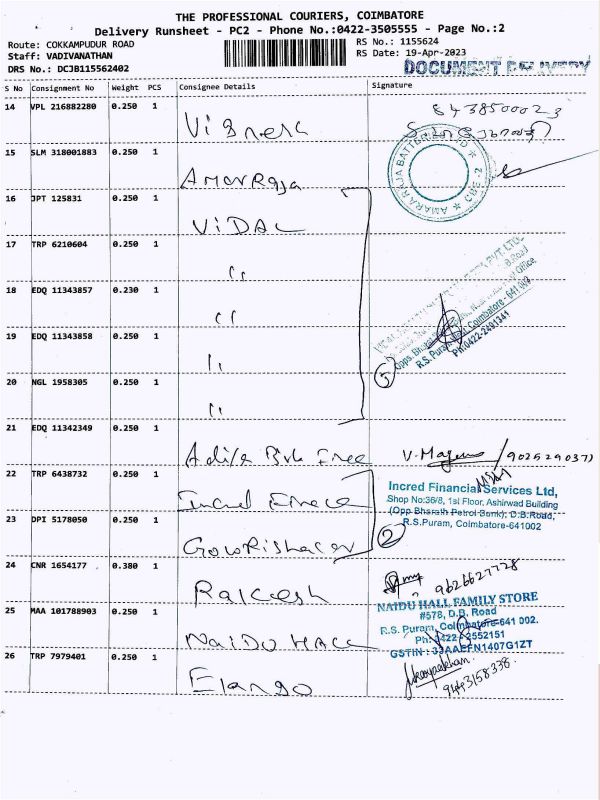 THE PROFESSIONAL COURIERS, COIMBATORE
Delivery Runsheet - PC2 - Phone No.:0422-3505555 - Page No.:2
Route: COKKAMPUDUR ROAD
RS No.: 1155624
Staff: VADIVANATHAN
RS Date: 19-Apr-2023
DRS No.: DCJB115562402
DOCUMENT DELIVERY
S No Consignment No Weight PCS Consignee Details Signature
14 VPL 216882280 0.250 1 Vignesh 8438500023
15 SLM 318001883 0.250 1 AmarRaja
AMARA RAJA BATTERIES LTD ★ CBE-2 ★
16 JPT 125831 0.250 1 VIDAL
17 TRP 6210604 0.250 1 "
18 EDQ 11343857 0.230 1 "
19 EDQ 11343858 0.250 1 "
20 NGL 1958305 0.250 1 "
Opps. Bharat
R.S. Puram, Coimbatore - 641 002
Ph:0422-2491341
5
21 EDQ 11342349 0.250 1 Aditya Birla V. 9025290371
22 TRP 6438732 0.250 1 Incred
Incred Financial Services Ltd,
Shop No:36/8, 1st Floor, Ashirwad Building
(Opp Bharath Petrol Bunk), D.B.Road,
R.S.Puram, Coimbatore-641002
2
23 DPI 5178050 0.250 1 Gowrishaker
24 CNR 1654177 0.380 1 Rakesh 9626627728
25 MAA 101788903 0.250 1 NAIDU HALL
NAIDU HALL FAMILY STORE
#578, D.B. Road
R.S. Puram, Coimbatore-641 002.
Ph: 0422-2552151
GSTIN : 33AAEFN1407G1ZT
26 TRP 7979401 0.250 1 Elango
9443158338.